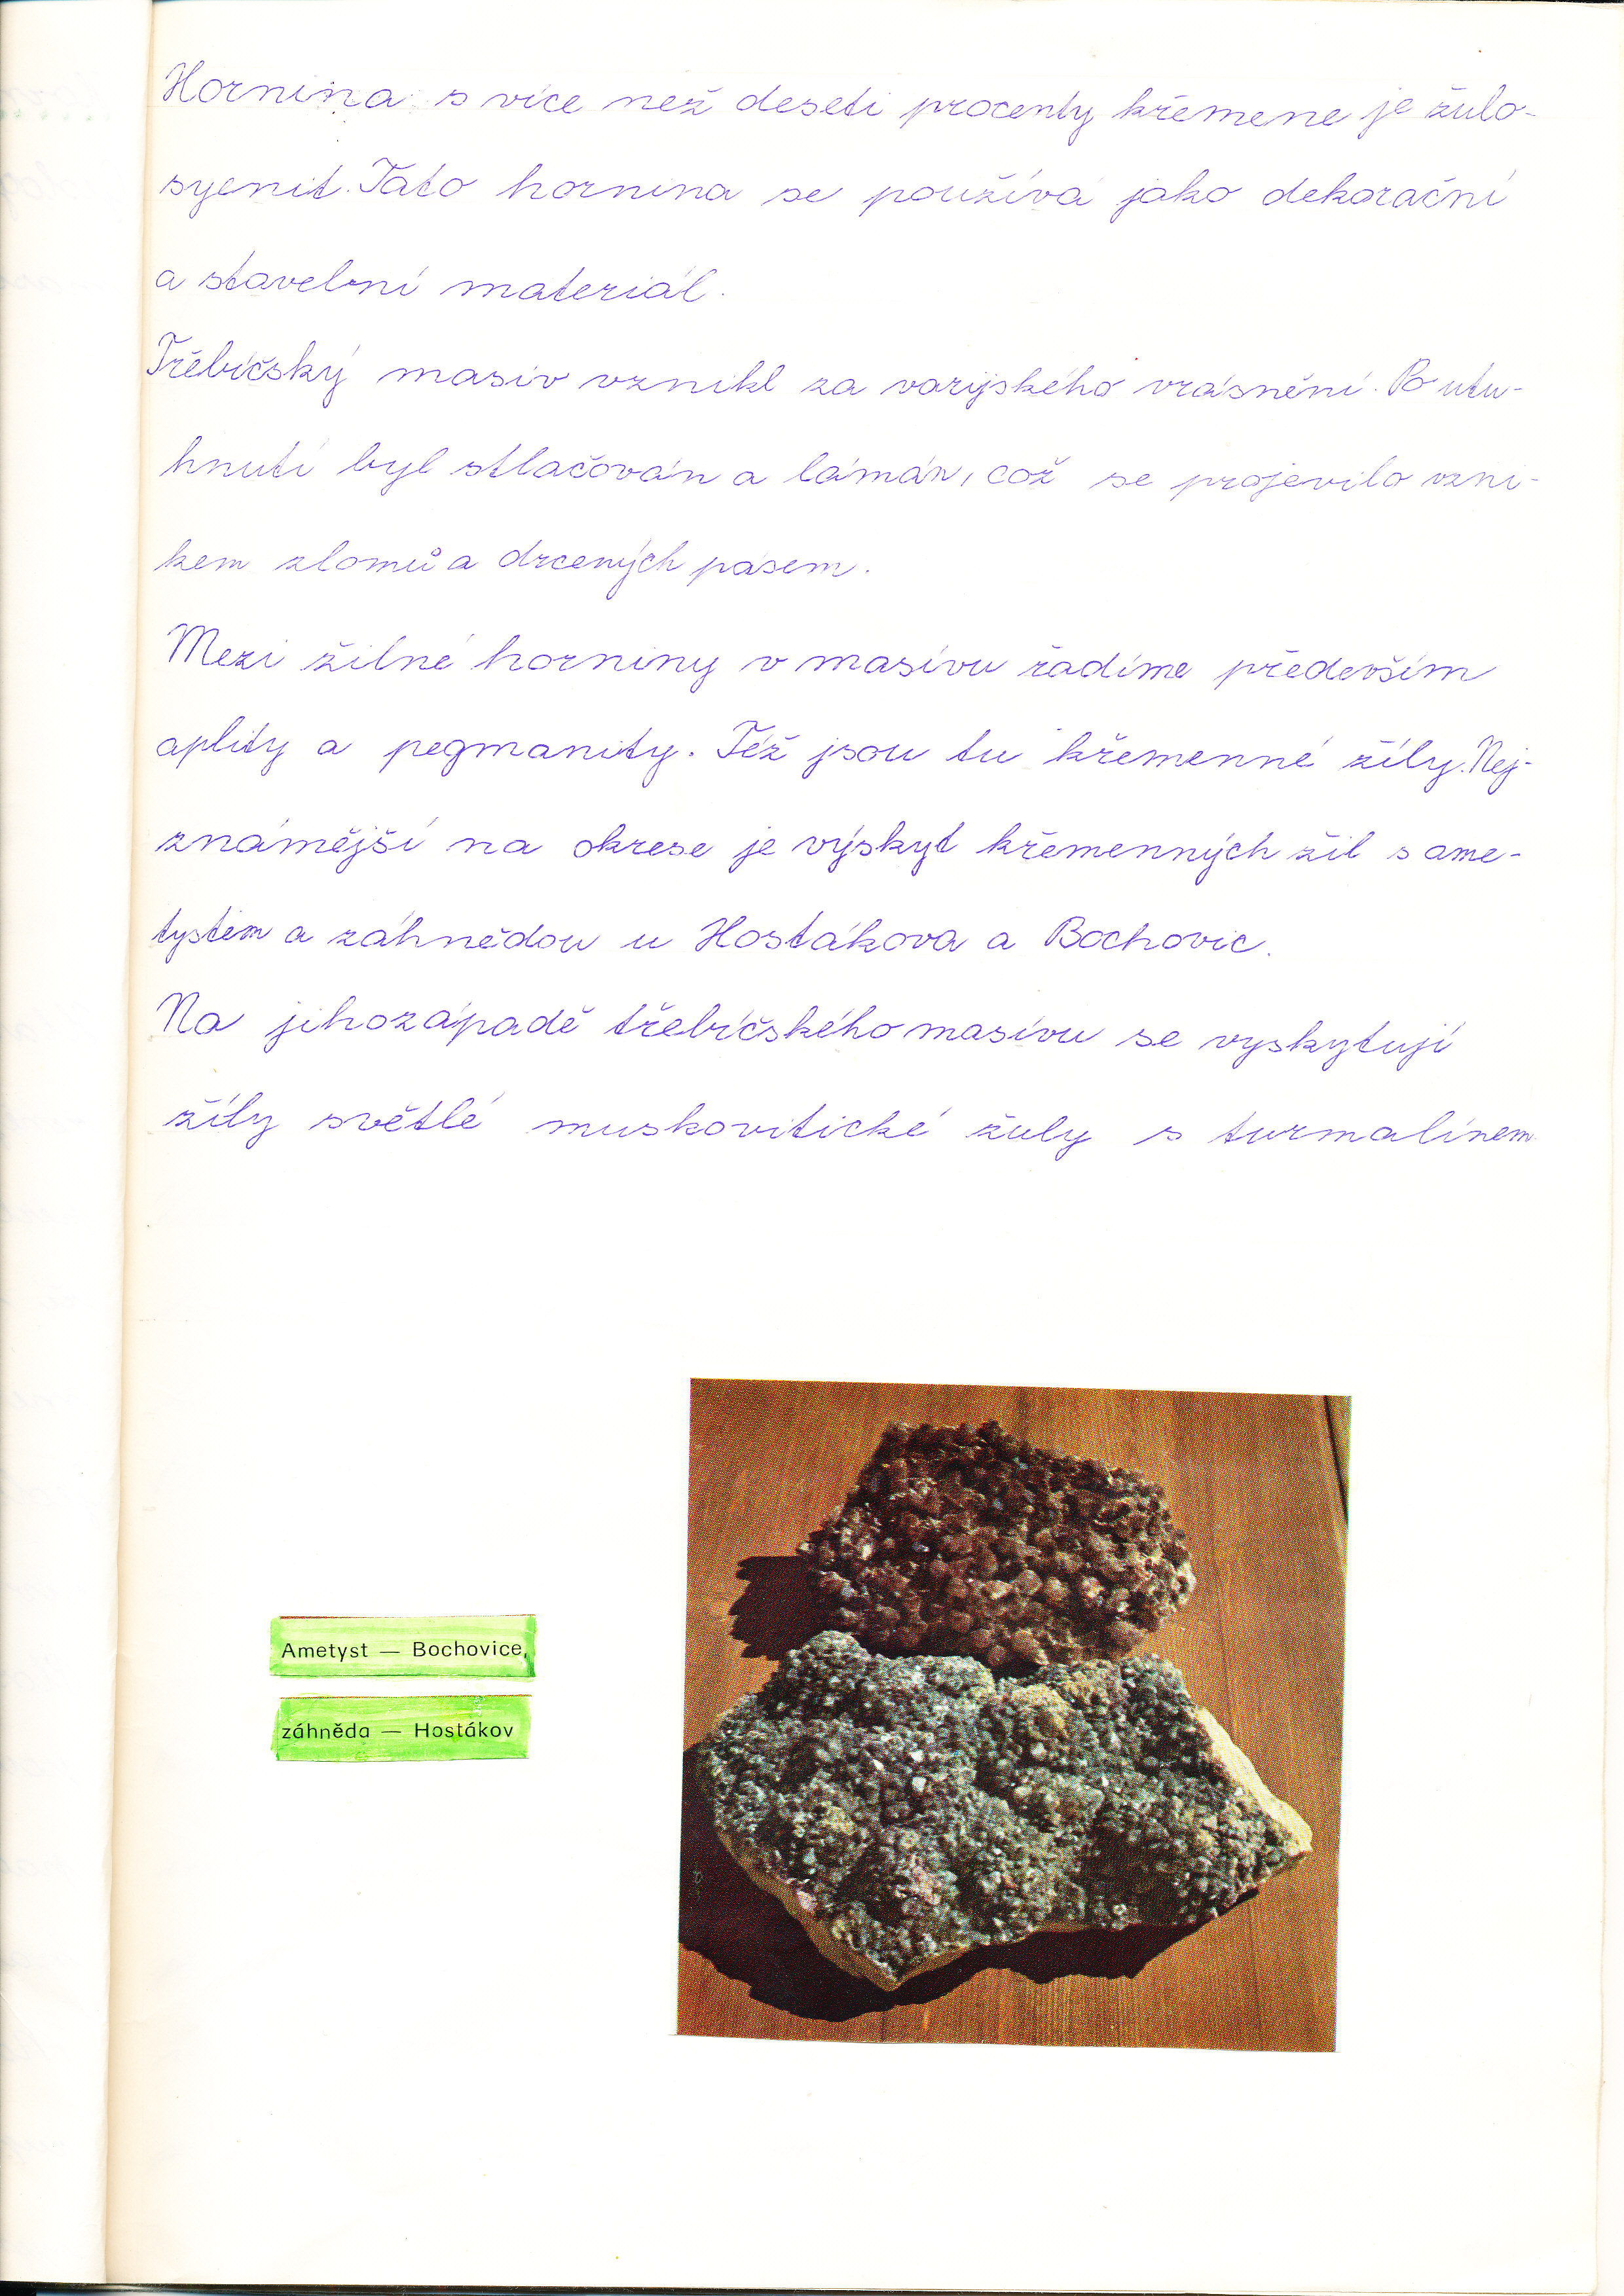 Hornina s více než deseti procenty křemene je žulo-
syenit. Tato hornina se používá jako dekorační
a stavební materiál.
Třebíčský masív vznikl za varijského vrásnění. Po utu-
hnutí byl stlačován a lámán, což se projevilo vzni-
kem zlomů a drcených pásem.
Mezi žilné horniny v masívu řadíme především
aplity a pegmanity. Též jsou tu křemenné žíly. Nej-
známější na okrese je výskyt křemenných žil s ame-
tystem a záhnědou u Hostákova a Bochovic.
Na jihozápadě třebíčského masívu se vyskytují
žíly světlé muskovitické žuly s turmalínem
Ametyst — Bochovice,
záhněda — Hostákov